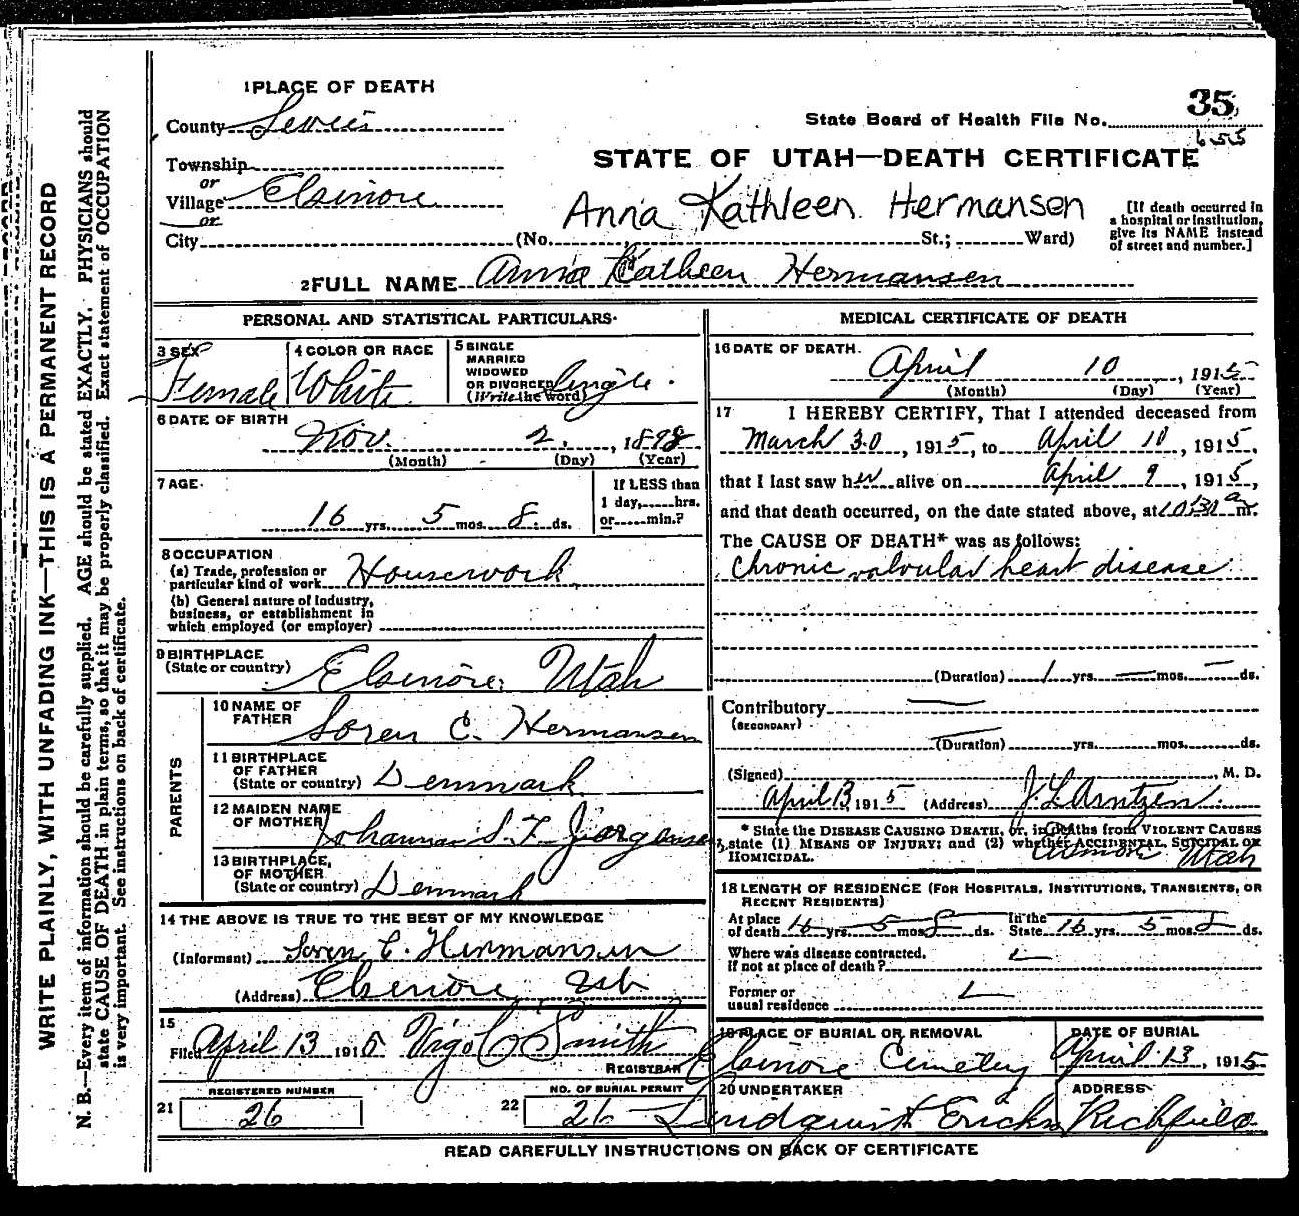 1 PLACE OF DEATH
County Sevier
Township
or
Village Elsinore
or
City (No. St.; Ward)
State Board of Health File No. 35
655
STATE OF UTAH—DEATH CERTIFICATE
Anna Kathleen Hermansen
[If death occurred in
a hospital or institution,
give its NAME instead
of street and number.]
2 FULL NAME Anna Kathleen Hermansen
PERSONAL AND STATISTICAL PARTICULARS
3 SEX
Female
4 COLOR OR RACE
White
5 SINGLE
MARRIED
WIDOWED
OR DIVORCED
(Write the word)
Single.
6 DATE OF BIRTH
Nov. 2. , 1898
(Month) (Day) (Year)
7 AGE
16 yrs. 5 mos. 8 ds.
If LESS than
1 day, hrs.
or min.?
8 OCCUPATION
(a) Trade, profession or
particular kind of work Housework
(b) General nature of industry,
business, or establishment in
which employed (or employer)
9 BIRTHPLACE
(State or country) Elsinore, Utah
PARENTS
10 NAME OF
FATHER Soren C. Hermansen
11 BIRTHPLACE
OF FATHER
(State or country) Denmark
12 MAIDEN NAME
OF MOTHER Johanna S. F. Jorgensen
13 BIRTHPLACE,
OF MOTHER
(State or country) Denmark
14 THE ABOVE IS TRUE TO THE BEST OF MY KNOWLEDGE
(Informant) Soren C. Hermansen
(Address) Elsinore
15
Filed April 13 1915 Vigo C Smith
REGISTRAR
REGISTERED NUMBER
21 26
NO. OF BURIAL PERMIT
22 26
MEDICAL CERTIFICATE OF DEATH
16 DATE OF DEATH.
April 10 , 1915
(Month) (Day) (Year)
17 I HEREBY CERTIFY, That I attended deceased from
March 30 , 1915, to April 10 , 1915,
that I last saw her alive on April 9 , 1915,
and that death occurred, on the date stated above, at 10:30 a m.
The CAUSE OF DEATH* was as follows:
Chronic valvular heart disease
(Duration) 1 yrs. — mos. — ds.
Contributory —
(SECONDARY)
(Duration) yrs. mos. ds.
(Signed) , M. D.
April 13 1915 (Address) J. L. Arntzen
* State the DISEASE CAUSING DEATH, or, in deaths from VIOLENT CAUSES
state (1) MEANS OF INJURY; and (2) whether ACCIDENTAL, SUICIDAL OR
HOMICIDAL.
Elsinore Utah
18 LENGTH OF RESIDENCE (FOR HOSPITALS, INSTITUTIONS, TRANSIENTS, OR
RECENT RESIDENTS)
At place
of death 16 yrs. 5 mos. 8 ds.
In the
State 16 yrs. 5 mos. 8 ds.
Where was disease contracted,
if not at place of death?
Former or
usual residence
19 PLACE OF BURIAL OR REMOVAL
Elsinore Cemetery
DATE OF BURIAL
April 13 , 1915
20 UNDERTAKER
Lindquist
ADDRESS
Richfield
READ CAREFULLY INSTRUCTIONS ON BACK OF CERTIFICATE
WRITE PLAINLY, WITH UNFADING INK—THIS IS A PERMANENT RECORD
N. B.—Every item of information should be carefully supplied. AGE should be stated EXACTLY. PHYSICIANS should
state CAUSE OF DEATH in plain terms, so that it may be properly classified. Exact statement of OCCUPATION
is very important. See instructions on back of certificate.